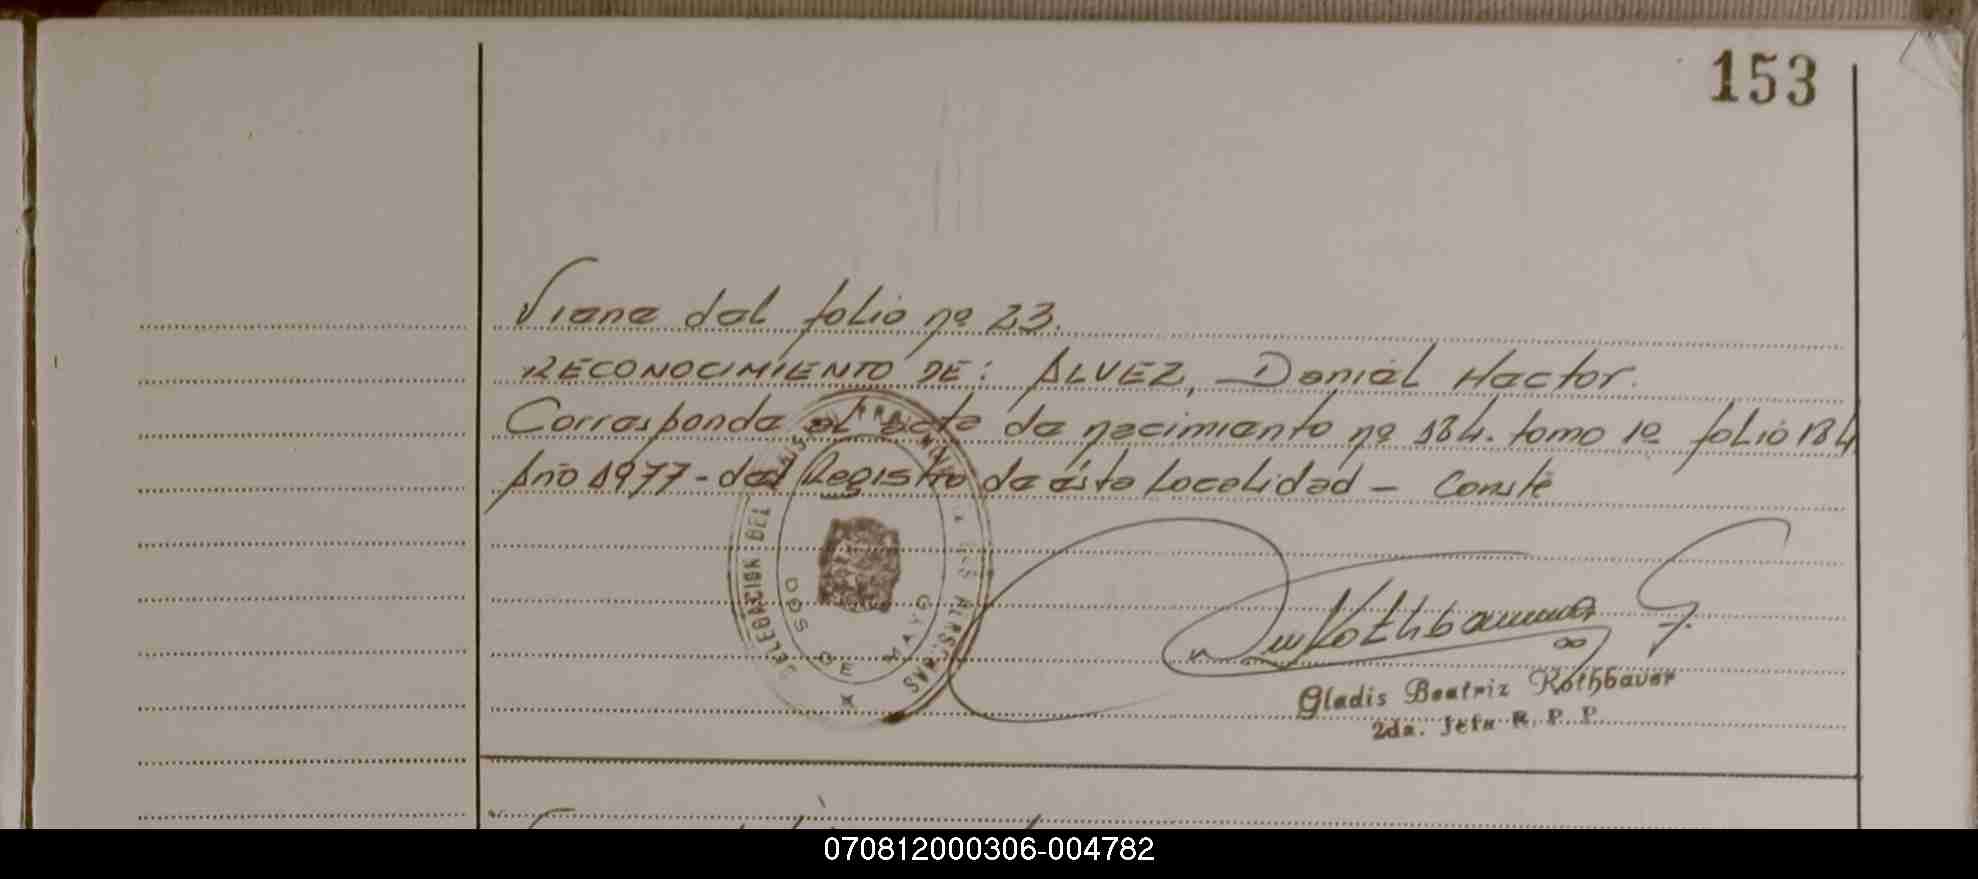 153
Viene del folio nº 23.
RECONOCIMIENTO DE: ALVEZ, Daniel Hector.
Corresponde al acta de nacimiento nº 184. tomo 1º folio 184
Año 1977 - del Registro de ésta Localidad - Conste
DELEGACION DEL
DOS DE MAYO
Rothbauer G.
Gladis Beatriz Rothbauer
2da. Jefa R. P. P.
070812000306-004782